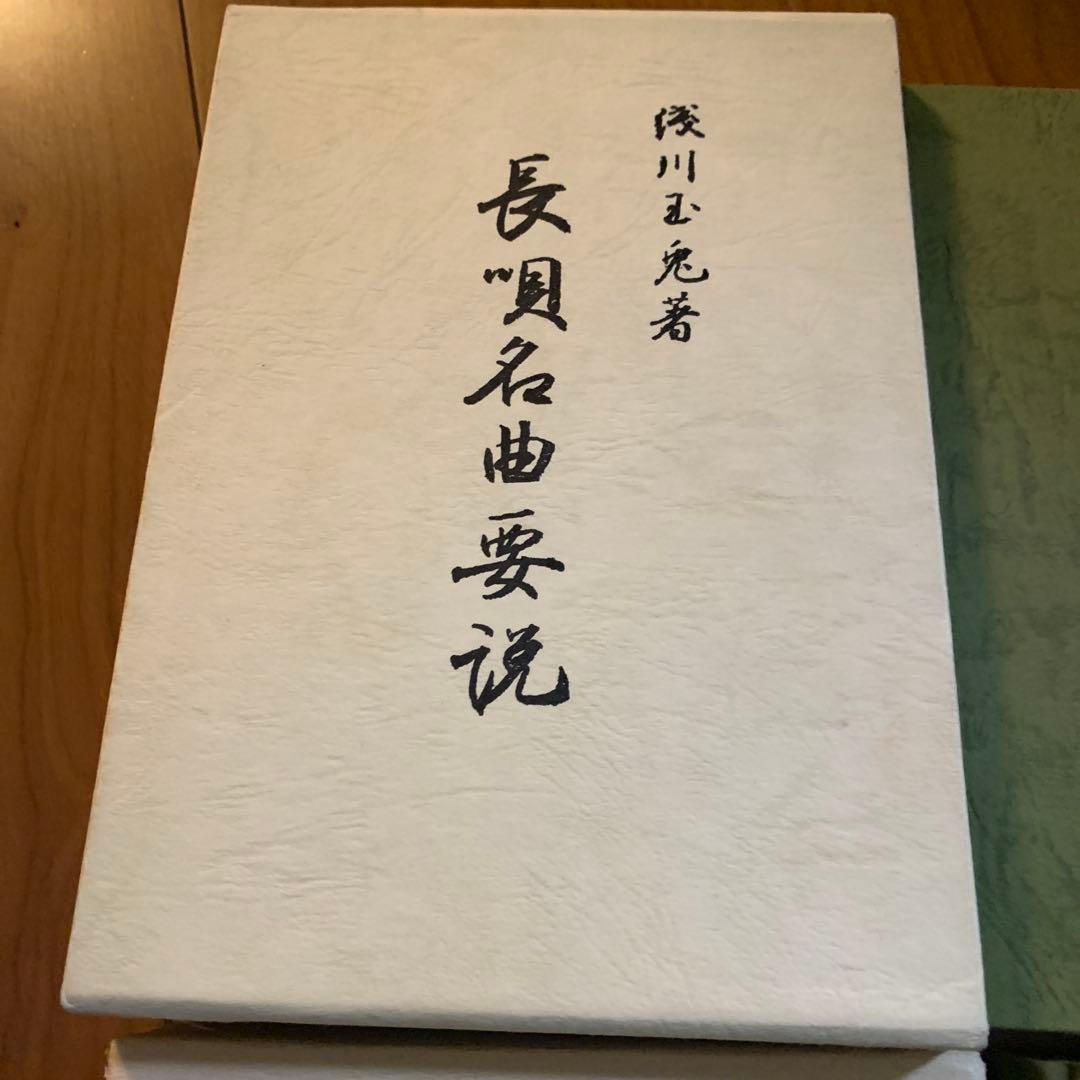 淺川玉兎著
長唄名曲要説